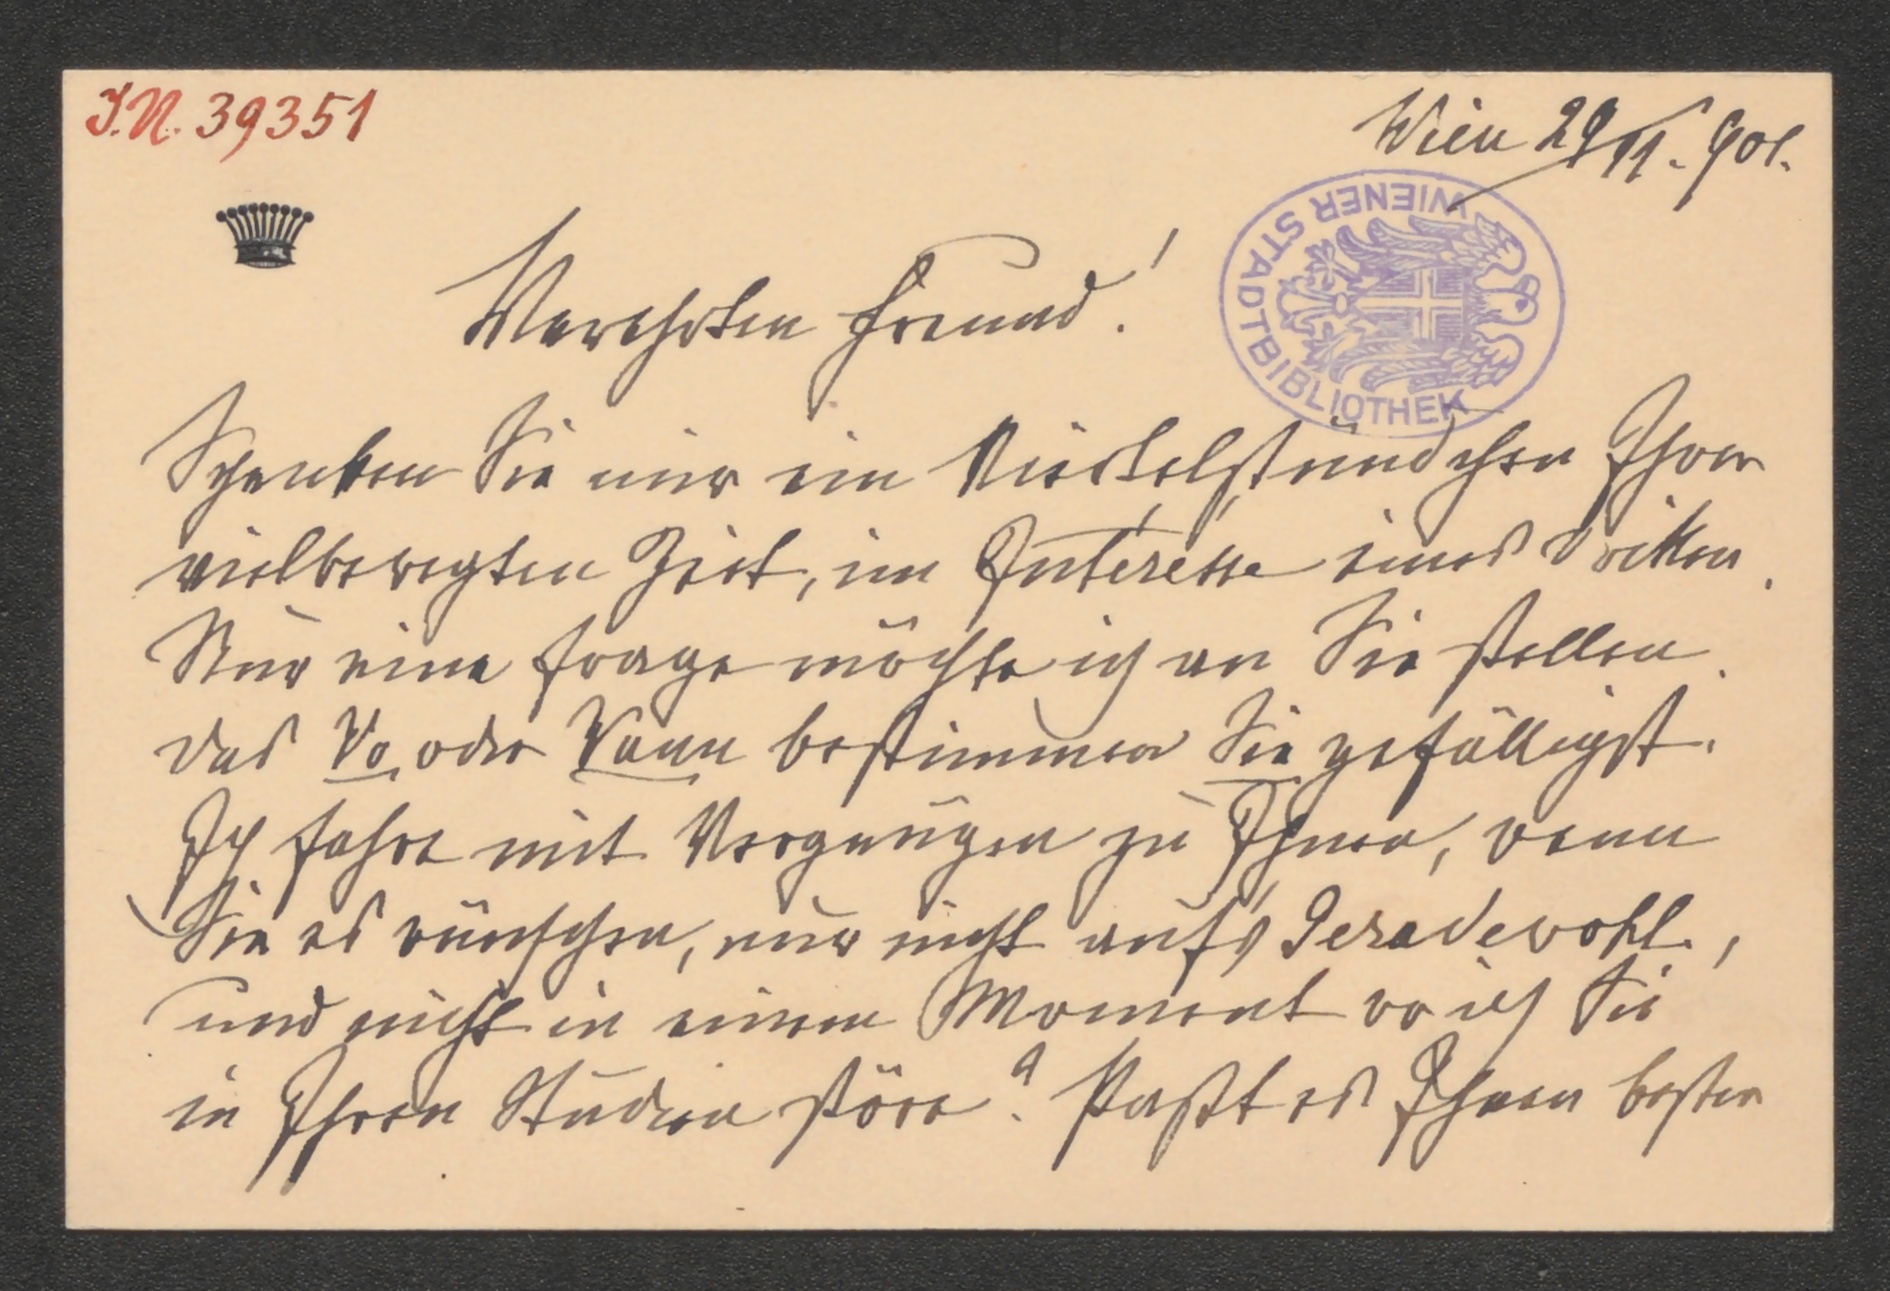 J.N. 39351
Wien 29/11. 901.
WIENER STADTBIBLIOTHEK
Verehrter Freund!
Schenken Sie mir ein Viertelstündchen Ihrer
vielbewegten Zeit, im Interesse eines Dritten.
Nur eine Frage möchte ich an Sie stellen.
Das Wo, oder Wann bestimmen Sie gefälligst.
Ich fahre mit Vergnügen zu Ihnen, wenn
Sie es wünschen, nur nicht auf's Geradewohl,
und nicht in einem Moment wo ich Sie
in Ihren Studien störe? Paßt es Ihnen besser